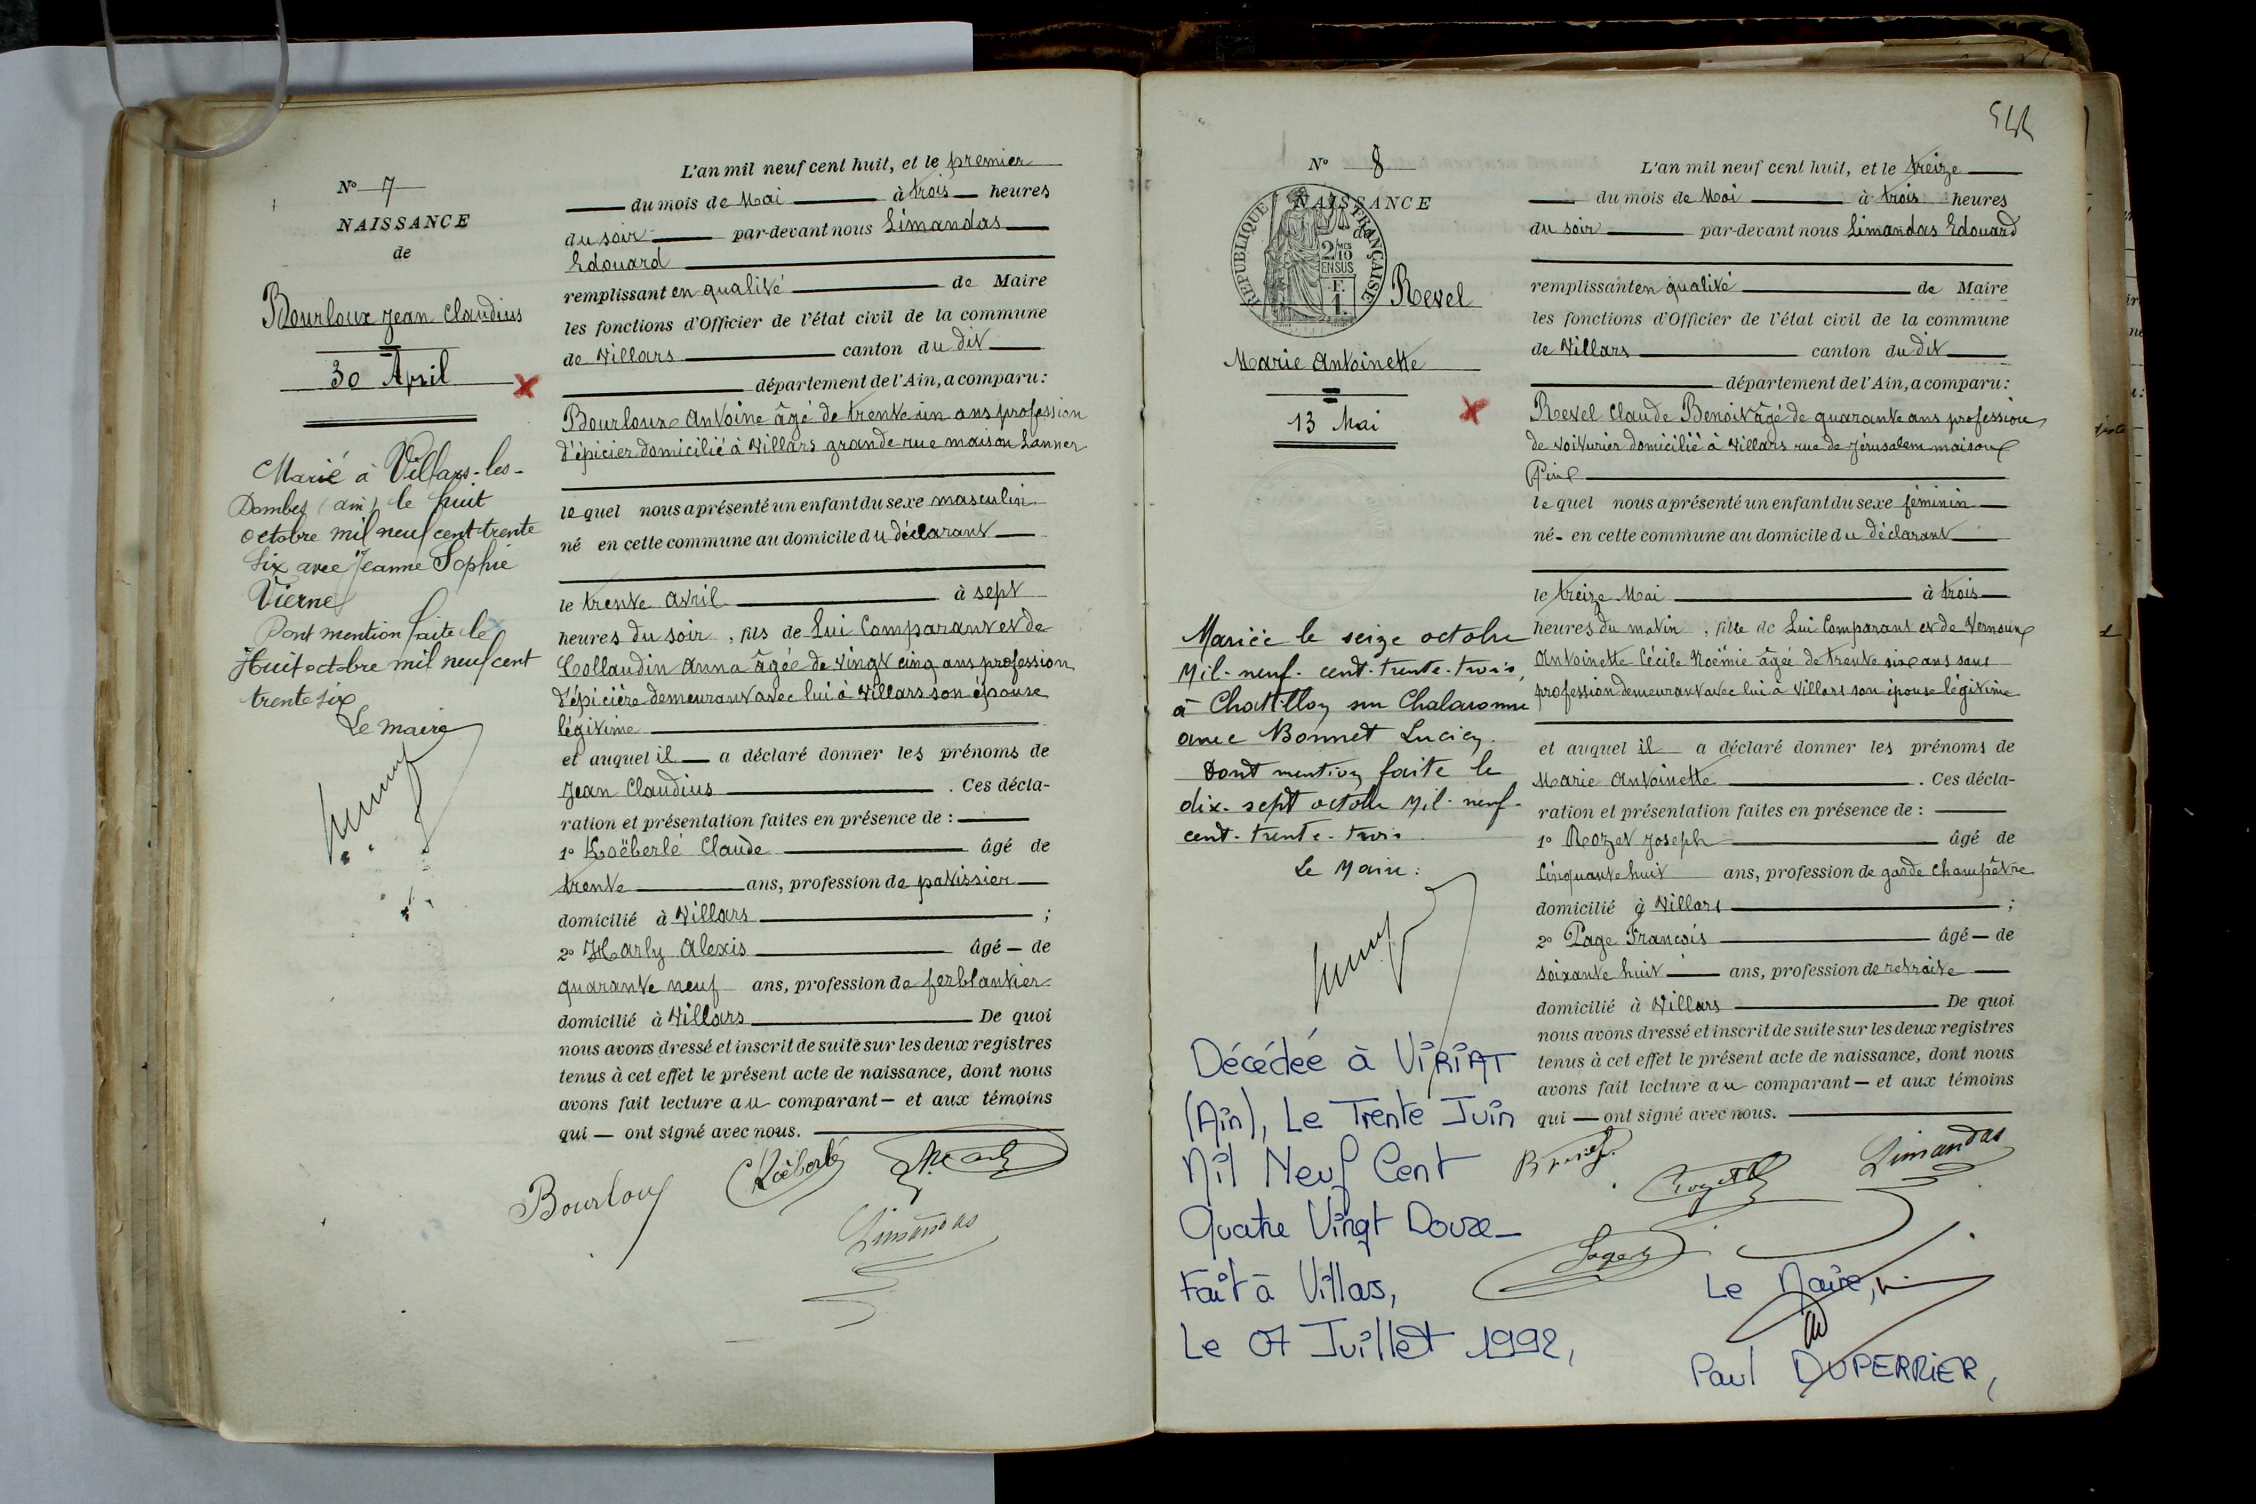 N° 7
NAISSANCE
de
Bourloux Jean Claudius
30 April
Marié à Villars-les-
Dombes (ain) le huit
octobre mil neuf cent trente
six avec Jeanne Sophie
Vierne
Dont mention faite le
Huit octobre mil neuf cent
trente six
Le maire
L'an mil neuf cent huit, et le premier
du mois de Mai à trois heures
du soir par-devant nous Limandas
Edouard
remplissant en qualité de Maire
les fonctions d'Officier de l'état civil de la commune
de Villars canton du dit
département de l'Ain, a comparu :
Bourloux Antoine âgé de trente un ans profession
d'épicier domicilié à Villars grande rue maison Lanner
le quel nous a présenté un enfant du sexe masculin
né en cette commune au domicile du déclarant
le trente Avril à sept
heures du soir, fils de Lui Comparant et de
Collaudin Anna âgée de vingt cinq ans profession
d'épicière demeurant avec lui à Villars son épouse
légitime
et auquel il a déclaré donner les prénoms de
Jean Claudius . Ces décla-
ration et présentation faites en présence de :
1° Koëberlé Claude âgé de
trente ans, profession de patissier
domicilié à Villars ;
2° Harly Alexis âgé de
quarante neuf ans, profession de ferblantier
domicilié à Villars De quoi
nous avons dressé et inscrit de suite sur les deux registres
tenus à cet effet le présent acte de naissance, dont nous
avons fait lecture au comparant et aux témoins
qui ont signé avec nous.
Bourloux CKoëberlé A. Harly
Limandas
544
N° 8
NAISSANCE
de
RÉPUBLIQUE FRANÇAISE
2/10 MES
EN SUS
F.
1.
Revel
Marie Antoinette
13 Mai
Mariée le seize octobre
Mil-neuf-cent-trente-trois,
à Chatillon sur Chalaronne
avec Bonnet Lucien.
Dont mention faite le
dix-sept octobre Mil-neuf-
cent-trente-trois
Le Maire :
Décédeé à VIRIAT
(Ain), Le Trente Juin
Mil Neuf Cent
Quatre Vingt Douze_
Fait à Villars,
Le 07 Juillet 1992,
L'an mil neuf cent huit, et le treize
du mois de Mai à trois heures
du soir par-devant nous Limandas Edouard
remplissant en qualité de Maire
les fonctions d'Officier de l'état civil de la commune
de Villars canton du dit
département de l'Ain, a comparu :
Revel Claude Benoit âgé de quarante ans profession
de voiturier domicilié à Villars rue de Jérusalem maison
le quel nous a présenté un enfant du sexe féminin
né en cette commune au domicile du déclarant
le treize Mai à trois
heures du matin, fille de Lui Comparant et de Vernoux
Antoinette Cécile Noëmie âgée de trente six ans sans
profession demeurant avec lui à Villars son épouse légitime
et auquel il a déclaré donner les prénoms de
Marie Antoinette . Ces décla-
ration et présentation faites en présence de :
1° Rozet Joseph âgé de
Cinquante huit ans, profession de garde champêtre
domicilié à Villars ;
2° Page François âgé de
soixante huit ans, profession de retraite
domicilié à Villars De quoi
nous avons dressé et inscrit de suite sur les deux registres
tenus à cet effet le présent acte de naissance, dont nous
avons fait lecture au comparant et aux témoins
qui ont signé avec nous.
Limandas
Le Maire,
Paul DUPERRIER,